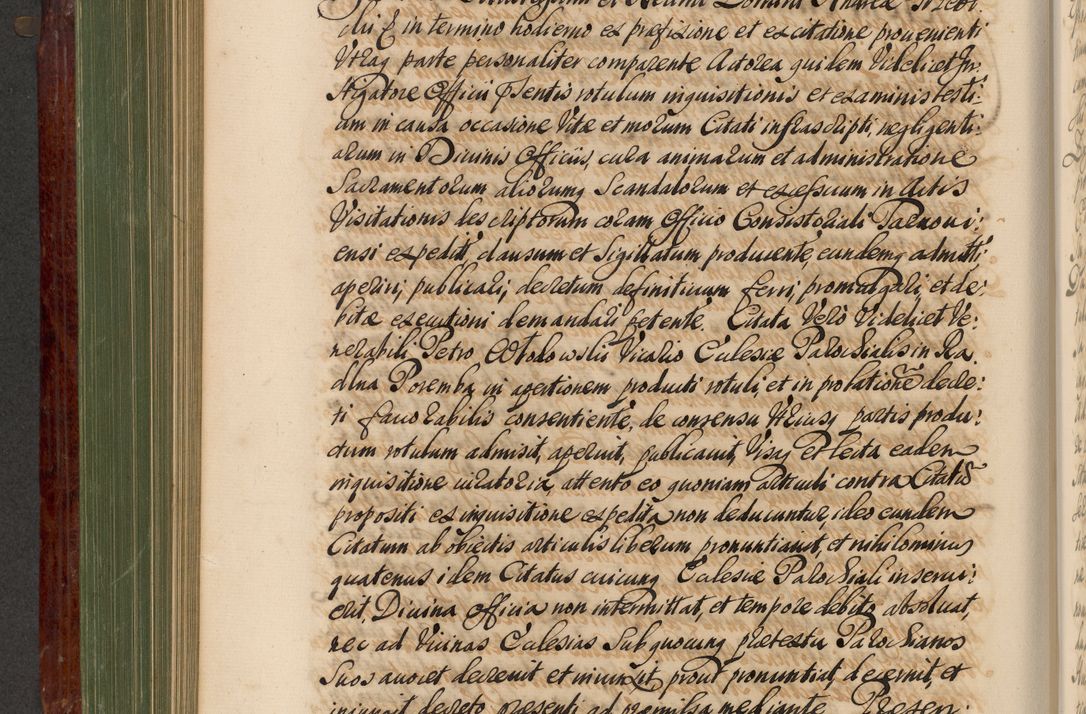 et Actum Domini Andreæ Trzebi:
cki E in termino hodierno ex præfixione et ex citatione provenienti
Utraq parte personaliter comparente Actorea quidem Videlicet In:
stigatore Officii Psentis rotulum inquisitionis et examinis testi:
um in causa occasione Vitæ et morum Citati infrascripti, negligenti:
arum in Divinis Officiis, cura animarum et administratione
Sacramentorum aliorumq Scandalorum et excessuum in Actis
Visitationis descriptorum coram Officio Consistoriali Pacnovi:
ensi expedit, clausum et Sigillatum producente, eundemq admitti
aperiri, publicari, decretum definitivum ferri, promulgari, et de:
bitæ executioni demandari petente. Citata Verò Videlicet Ve:
nerabili Petro Vicario Ecclesiæ Parochialis in Ra:
dlna Poremba in apertionem producti rotuli, et in prolatione decre:
ti favorabilis consentiente, de consensu Utriusq partis produ:
ctum rotulum admisit, aperuit, publicavit, Visaq et lecta eadem
inquisitione iuratoria, attento eo quoniam articuli contra Citatũ
propositi ex inquisitione expedita non deducuntur, ideo eundem
Citatum ab obiectis articulis liberum pronuntiavit, et nihilominus
quatenus idem Citatus cuicunq Ecclesiæ Parochiali inservi:
erit, Divina Officia non intermittat, et tempore debito absoluat,
nec ad Vicinas Ecclesias Sub quocunq prætextu Parochianos
Suos avocet decrevit et iniunxit prout pronuntiat, decernit, et
iniungit decreto præsenti ad præmissa mediante. Presen: